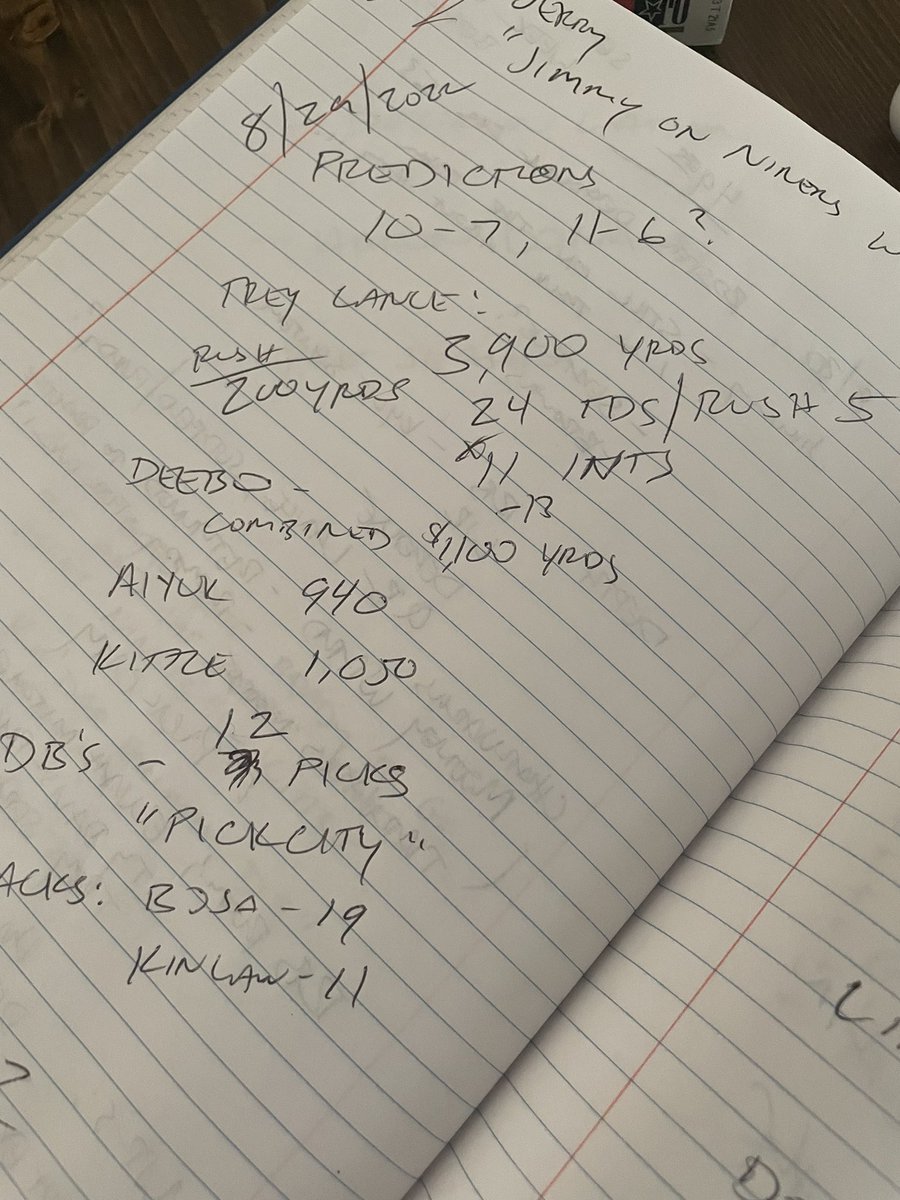 JERRY
"JIMMY ON NINERS
8/29/2022
PREDICTIONS
10-7, 11-6?
TREY LANCE:
3,900 YRDS
RUSH
200 YRDS
24 TDS/RUSH 5
11 INTS
-13
DEEBO -
COMBINED 1,100 YRDS
AIYUK 940
KITTLE 1,050
12
DB'S - PICKS
"PICKCITY"
ACKS: BOSA - 19
KINLAW - 11